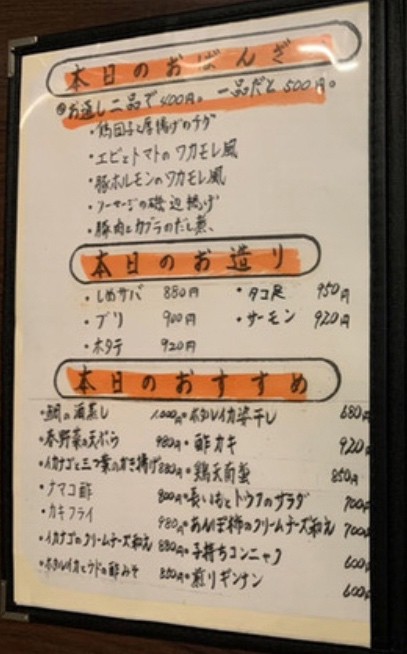 本日のおばんざ
お通し二品で400円。一品だと500円。
・鶏団子と厚揚げのチゲ
・エビとトマトのワカモレ風
・豚ホルモンのワカモレ風
・ソーセージの磯辺揚げ
・豚肉とカブラのだし煮
本日のお造り
・しめサバ 880円 ・タコ足 950円
・ブリ 900円 ・サーモン 920円
・ホタテ 920円
本日のおすすめ
・鯛の酒蒸し 1,000円 ・ホタルイカ姿干し 680円
・春野菜の天ぷら 980円 ・酢カキ 920円
・イカナゴと三つ葉のかき揚げ 880円 ・鶏天南蛮 850円
・ナマコ酢 800円 ・長いもとトウフのサラダ 700円
・カキフライ 980円 ・あんぽ柿のクリームチーズ和え 700円
・イカナゴのクリームチーズ和え 880円 ・子持ちコンニャク 600円
・ホタルイカとウドの酢みそ 850円 ・煎りギンナン 600円